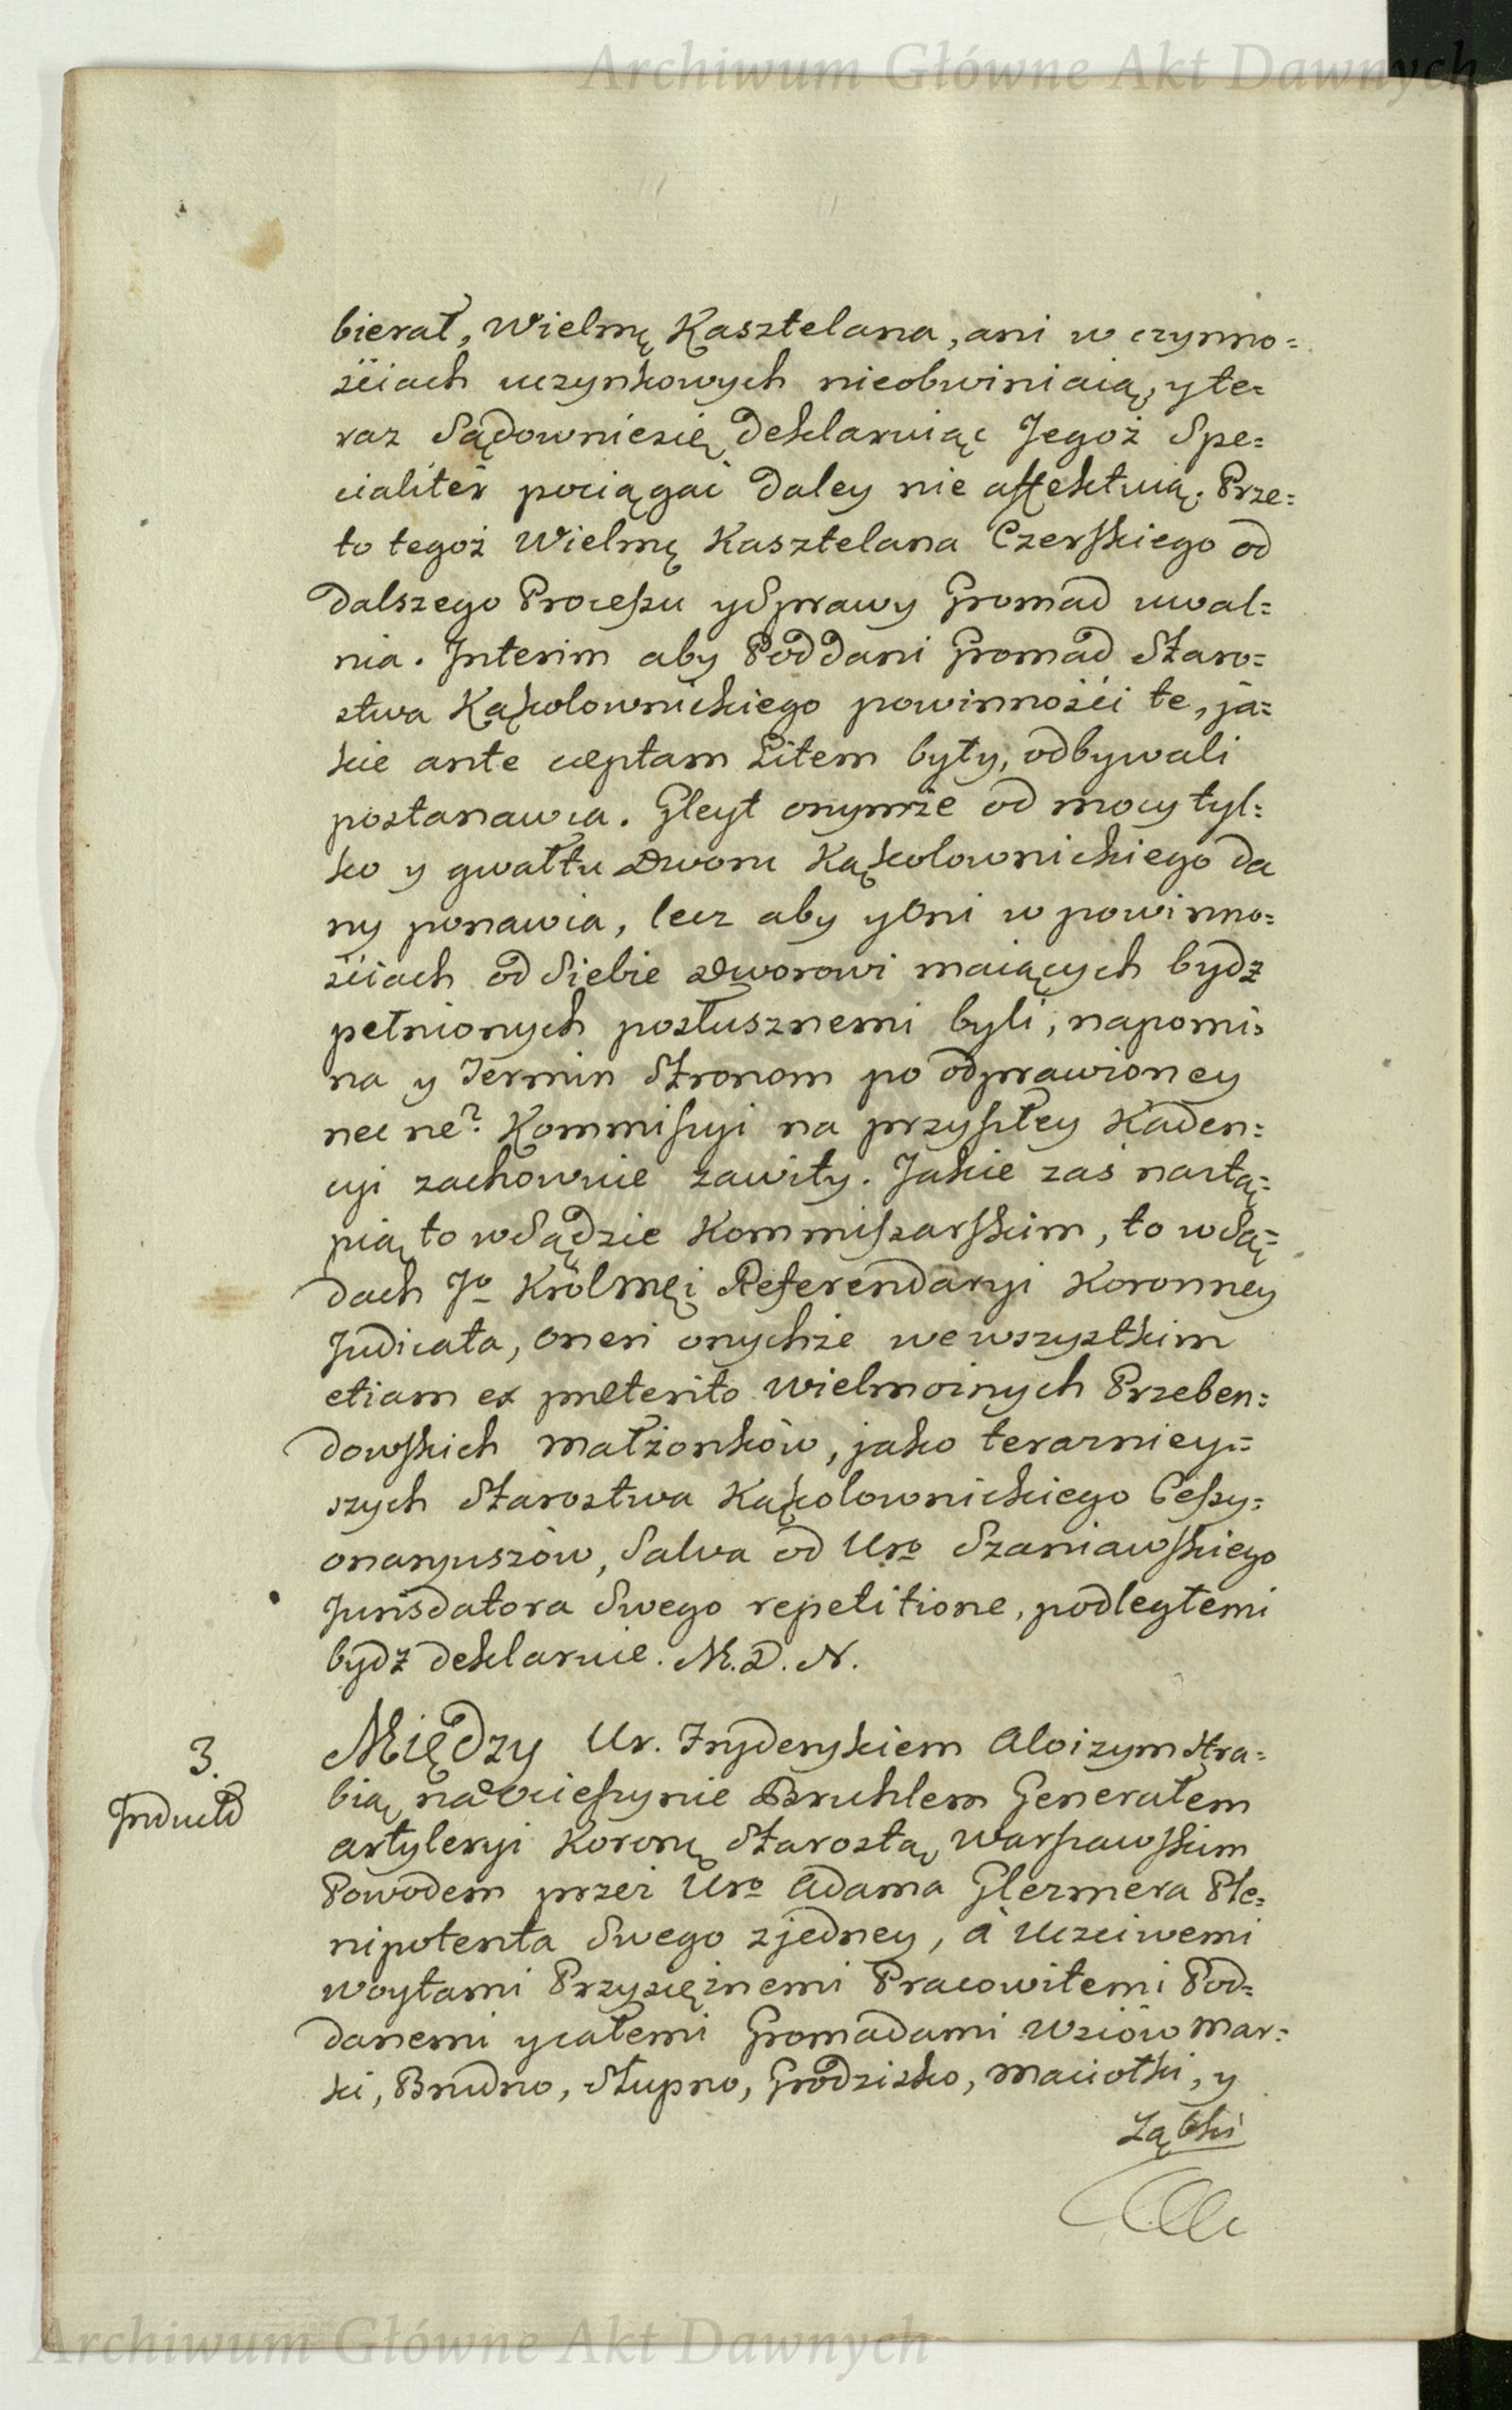 Archiwum Główne Akt Dawnych
bierał, Wielmę Kasztelana, ani w czynno=
ściach uczynkowych nieobwiniaią, y te=
raz Sądowniesię deklaruiąc Jegoż Spe=
cialiter pociągać daley nie affektuią. Prze=
to tegoż Wielmę Kasztelana Czerskiego od
dalszego Processu ySprawy Gromad uwal=
nia. Interim aby Poddani Gromad Staro=
stwa Kąkolownickiego powinności te, ja=
kie ante cæptam Litem były, odbywali
postanawia. Gleyt onymże od mocy tyl=
ko y gwałtu Dworu Kąkolownickiego da
ny ponawia, lecz aby yOni w powinno=
ściach od Siebie Dworowi maiących bydz
pełnionych posłusznemi byli, napomi=
na y Termin Stronom po odprawioney
nec ne? Kommissyi na przyszłey Kaden=
cyi zachownie zawity. Jakie zaś nastą=
pią to wSądzie Kommissarskim, to wSą=
dach Jo KrólMęi Referendaryi Koronney
Judicata, Oneri onychże we wszystkim
etiam ex præterito Wielmożnych Przeben=
dowskich Małżonków, jako terazniey=
szych Starostwa Kąkolownickiego Cessy=
onaryuszów, Salva od Uro Szaniawskiego
Jurisdatora Swego repetitione, podległemi
bydz deklaruie. M. D. N.
3.
Induckd
Między Ur. Fryderykiem Aloizym Hra=
bią na Ociessynie Bruhlem Generałem
Artyleryi Koronę Starostą Warszawskim
Powodem przez Uro Adama Glezmera Ple=
nipotenta Swego zjedney, á Uczciwemi
Woytami Przysiężnemi Pracowitemi Pod=
danemi ycałemi Gromadami Wsiów Mar=
ki, Brudno, Słupno, Grodzisko, Maciołki, y
Ząbki
Archiwum Główne Akt Dawnych